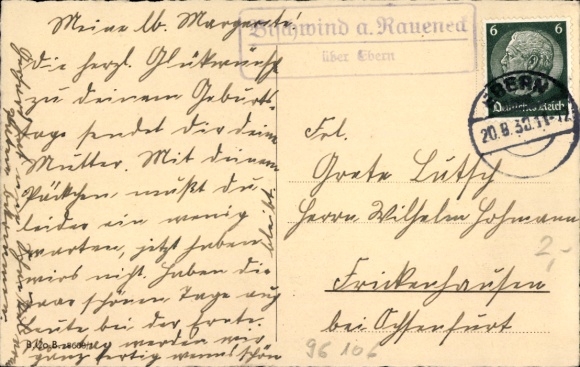 Meine lb. Margarete!
Die herzl. Glückwünsche
zu deinem Geburts-
tage sendet dir deine
Mutter. Mit deinem
Päckchen mußt du
leider ein wenig
warten, jetzt haben
wirs nicht. Haben die
paar schönen Tage auf
heute bei der Ernte.
werden wir
ganz fertig wenns schön
bleibt.
B. No. B.
Bischwind a. Raueneck
über Ebern
6 6
Deutsches Reich
EBERN
20.8.11-12
Frl.
Grete Lutsch
Herrn Wilhelm Hohmann
Frickenhausen
bei Ochsenfurt
2,-
96 106